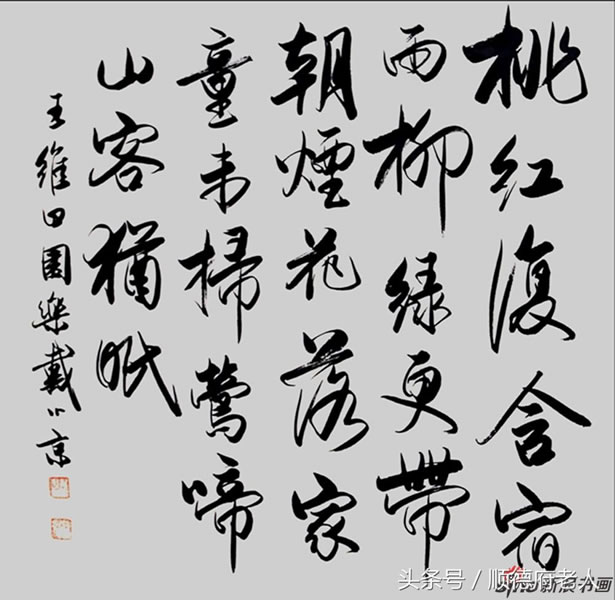 桃红復含宿
雨柳绿更帶
朝煙花落家
童未掃鶯啼
山客猶眠
王維田園樂戴小京
头条号 / 顺德府老人
新浪书画